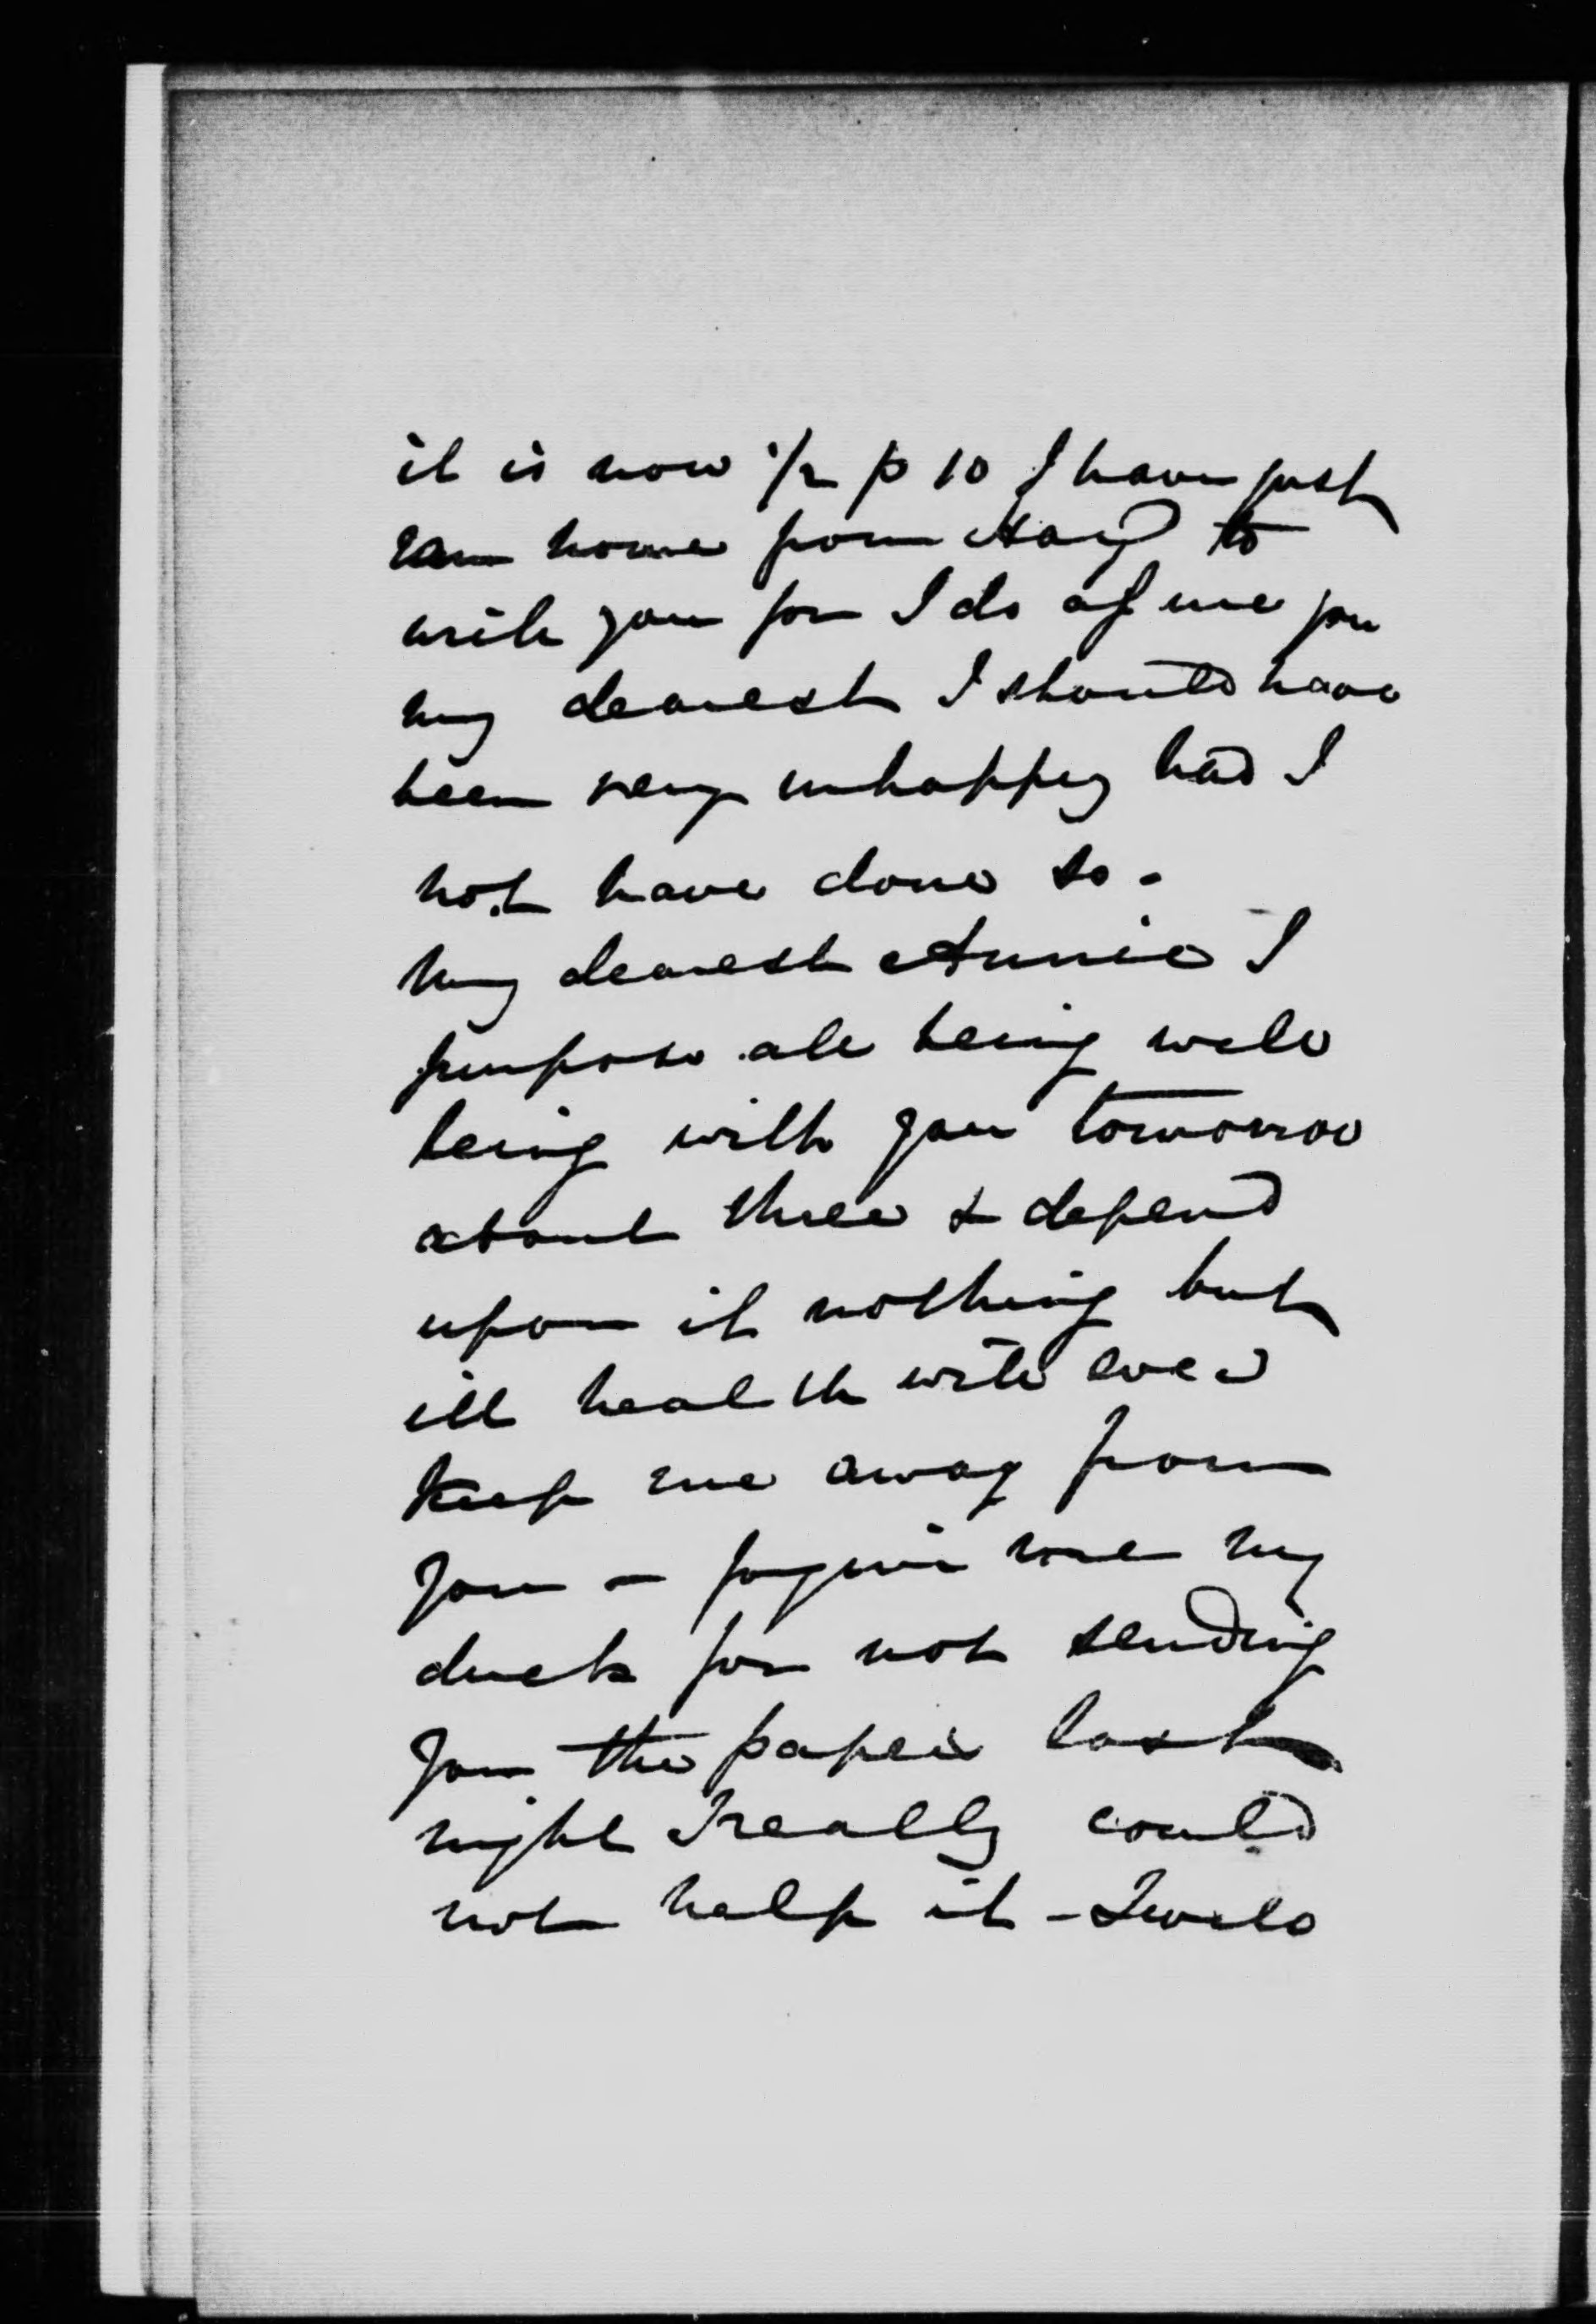 it is now 1/2 p 10 I have just
ran home from Hay to
write you for I do assure you
my dearest I should have
been very unhappy had I
not have done so.
My dearest Annie I
purpose all being well
being with you tomorrow
about three & depend
upon it nothing but
ill health will ever
keep me away from
you - forgive me my
duck for not sending
you the papers last
night I really could
not help it - I will